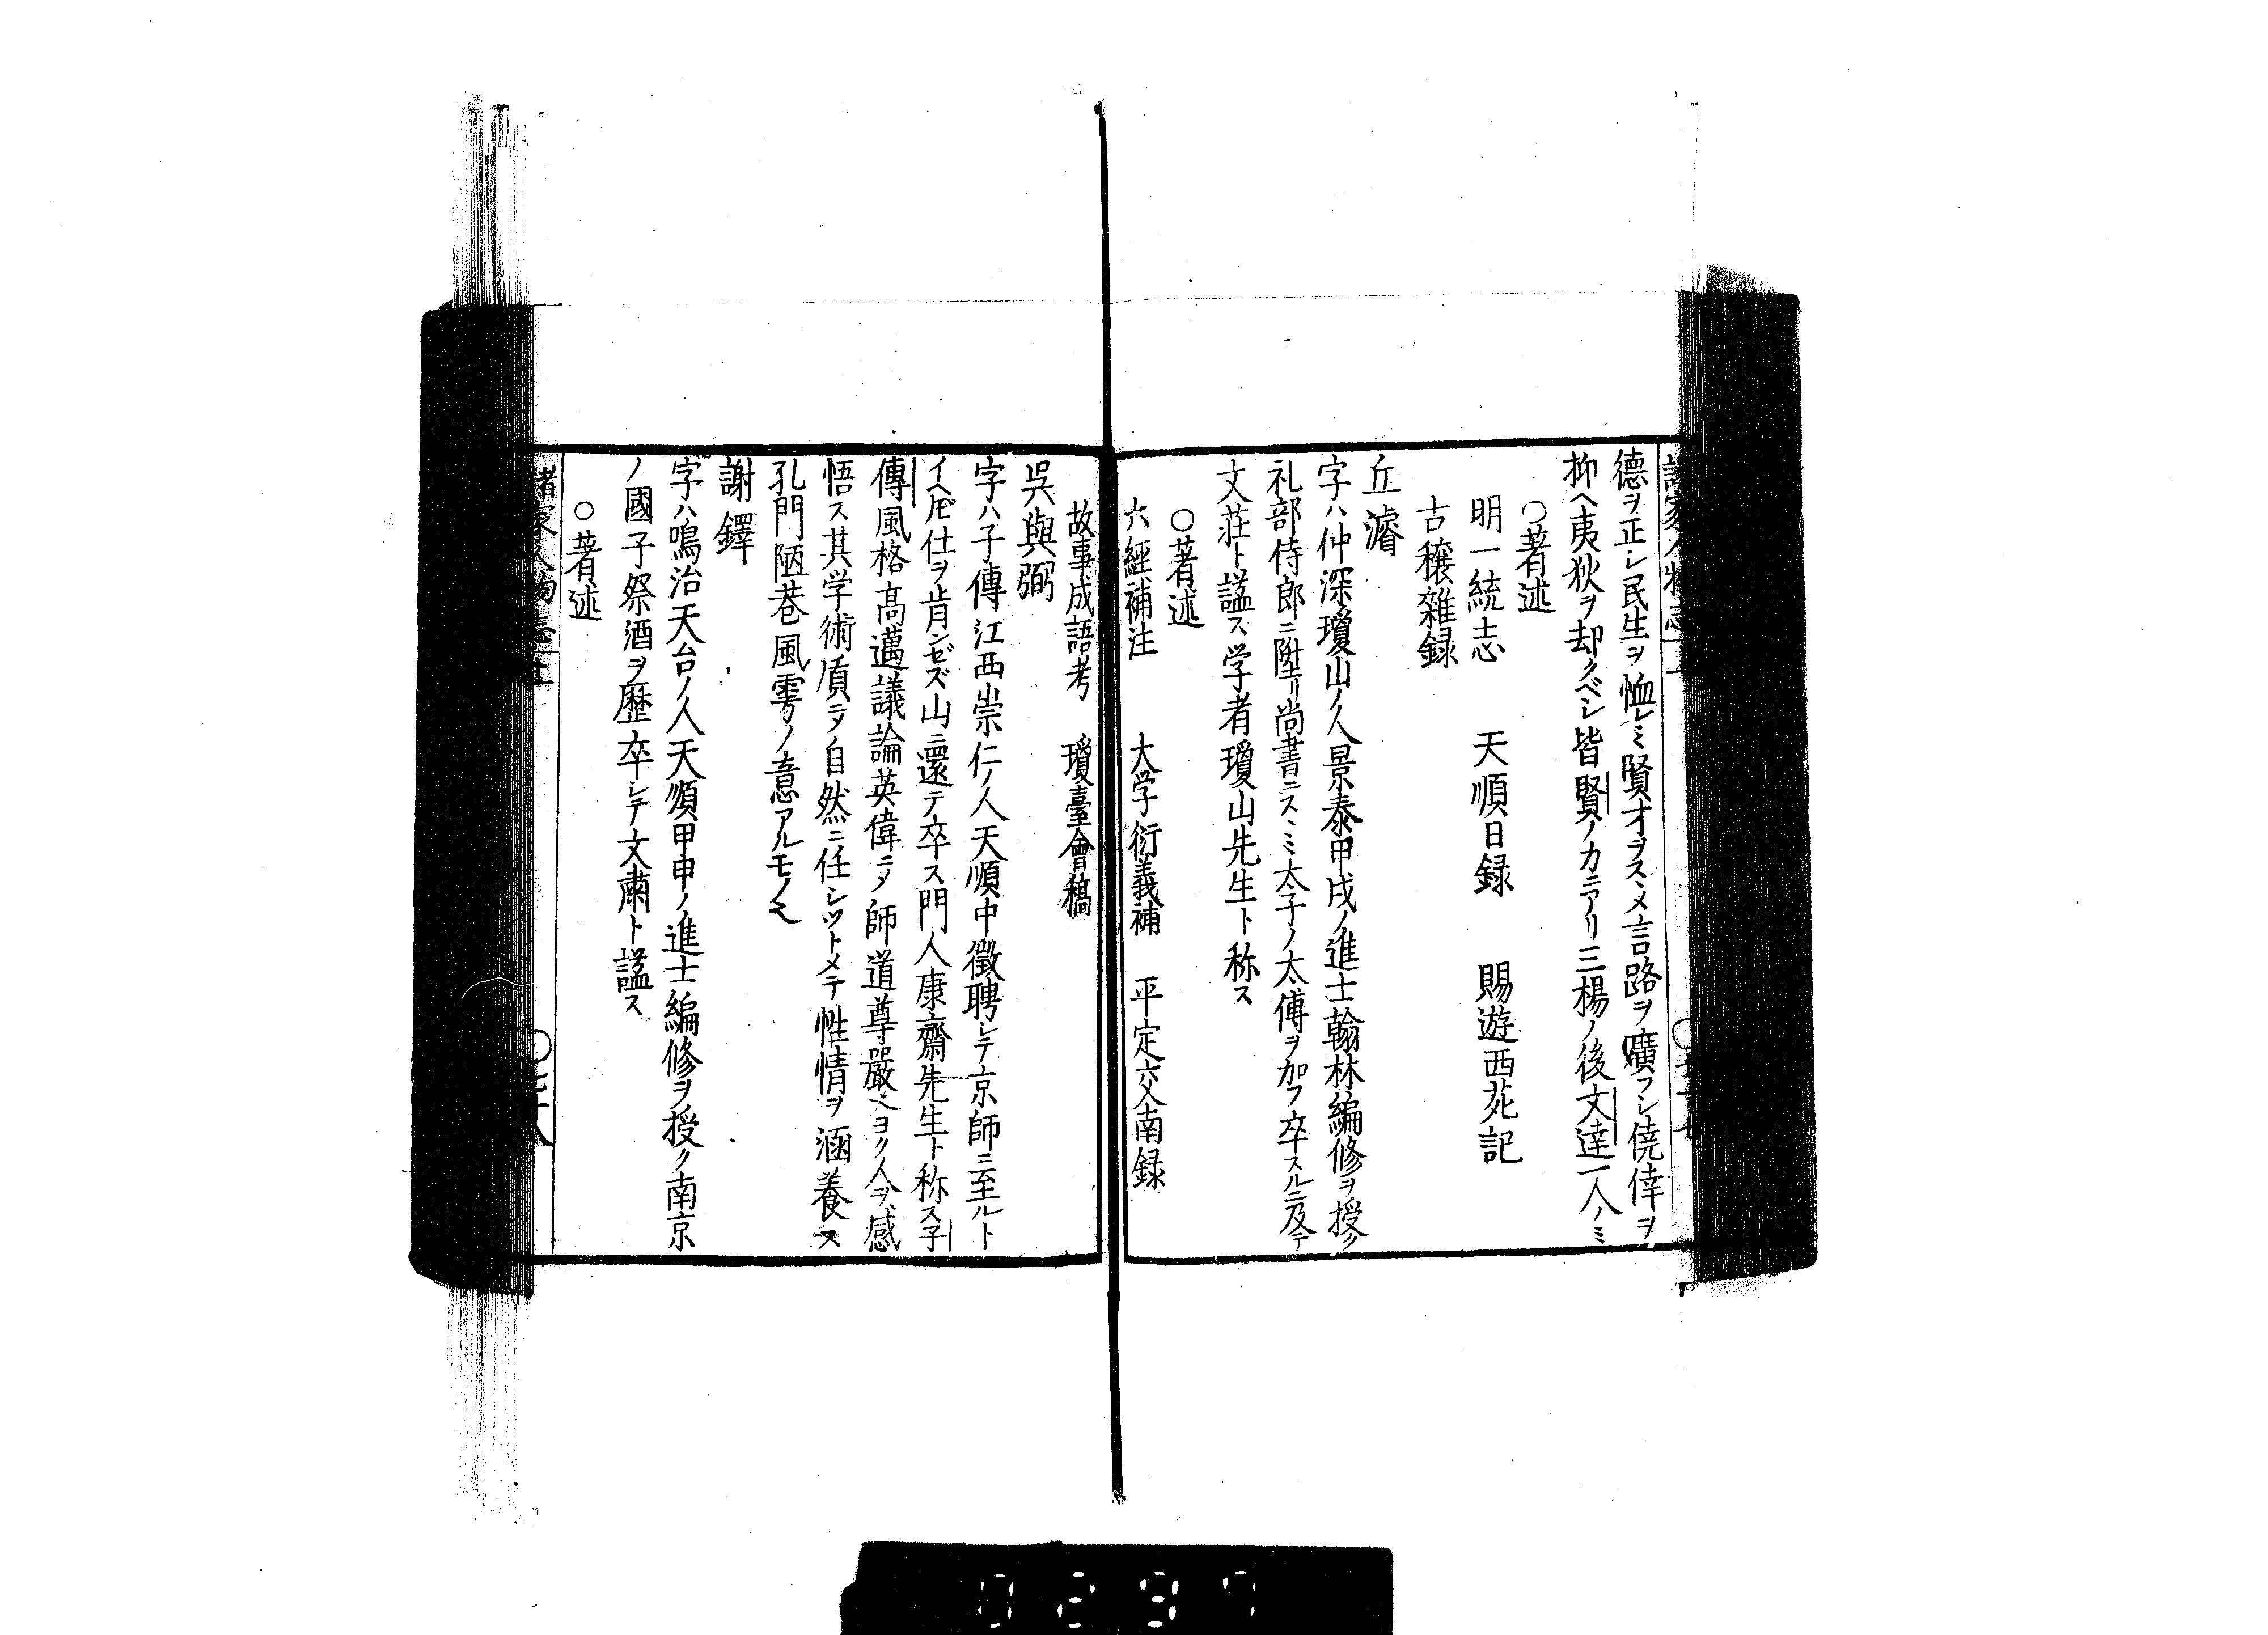 德ヲ正シ民生ヲ恤レミ賢才ヲスヽメ言路ヲ廣フシ僥倖ヲ
抑ヘ夷狄ヲ却クベシ皆賢ノカニアリ三楊ノ後文達一人ノミ
○著述
明一統志 天順日録 賜遊西苑記
古穰雜録
丘濬
字ハ仲深瓊山ノ人景泰甲戌ノ進士翰林編修ヲ授ク
礼部侍郎ニ陞リ尚書ニスヽミ太子ノ太傅ヲ加フ卒スルニ及テ
文莊ト諡ス学者瓊山先生ト称ス
○著述
六經補注 大学衍義補 平定交南録
故事成語考 瓊臺會稿
呉與弼
字ハ子傳江西崇仁ノ人天順中徵聘シテ京師ニ至ルト
イヘ𪜈仕ヲ肯ンゼズ山ニ還テ卒ス門人康齋先生ト称ス子
傳風格髙邁議論英偉ニ〆師道尊嚴ヨク人ヲ感
悟ス其学術質ヲ自然ニ任シツトメテ性情ヲ涵養ス
孔門陋巷風雩ノ意アルモノ也
謝鐸
字ハ鳴治天台ノ人天順甲申ノ進士編修ヲ授ク南京
ノ國子祭酒ヲ歴卒シテ文肅ト諡ス
○著述
諸家人物志 上
○七十八
0297